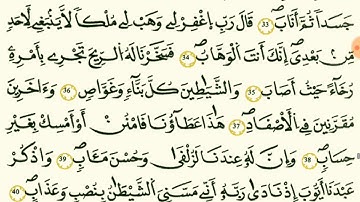 جَسَداٗ ثُمَّ أَنَابَۖ 33 قَالَ رَبِّ اِ۪غْفِرْ لِے وَهَبْ لِے مُلْكاٗ لَّا يَنۢبَغِے لِأَحَدٖ
مِّنۢ بَعْدِيَۖ إِنَّكَ أَنتَ اَ۬لْوَهَّابُۖ 34 فَسَخَّرْنَا لَهُ اُ۬لرِّيحَ تَجْرِے بِأَمْرِهِۦ
رُخَآءً حَيْثُ أَصَابَۖ 35 وَالشَّيَٰطِينَ كُلَّ بَنَّآءٖ وَغَوَّاصٖۖ 36 وَءَاخَرِينَ
مُقَرَّنِينَ فِے اِ۬لَاصْفَادِۖ 37 هَٰذَا عَطَآؤُنَا فَامْنُنَ اَوَ اَمْسِكْ بِغَيْرِ
حِسَابٖۖ 38 وَإِنَّ لَهُۥ عِندَنَا لَزُلْفَىٰ وَحُسْنَ مَـَٔابٖۖ 39 وَاذْكُرْ
عَبْدَنَآ أَيُّوبَ إِذْ نَادَىٰ رَبَّهُۥٓ أَنِّے مَسَّنِيَ اَ۬لشَّيْطَٰنُ بِنُصْبٖ وَعَذَابٍۖ 40